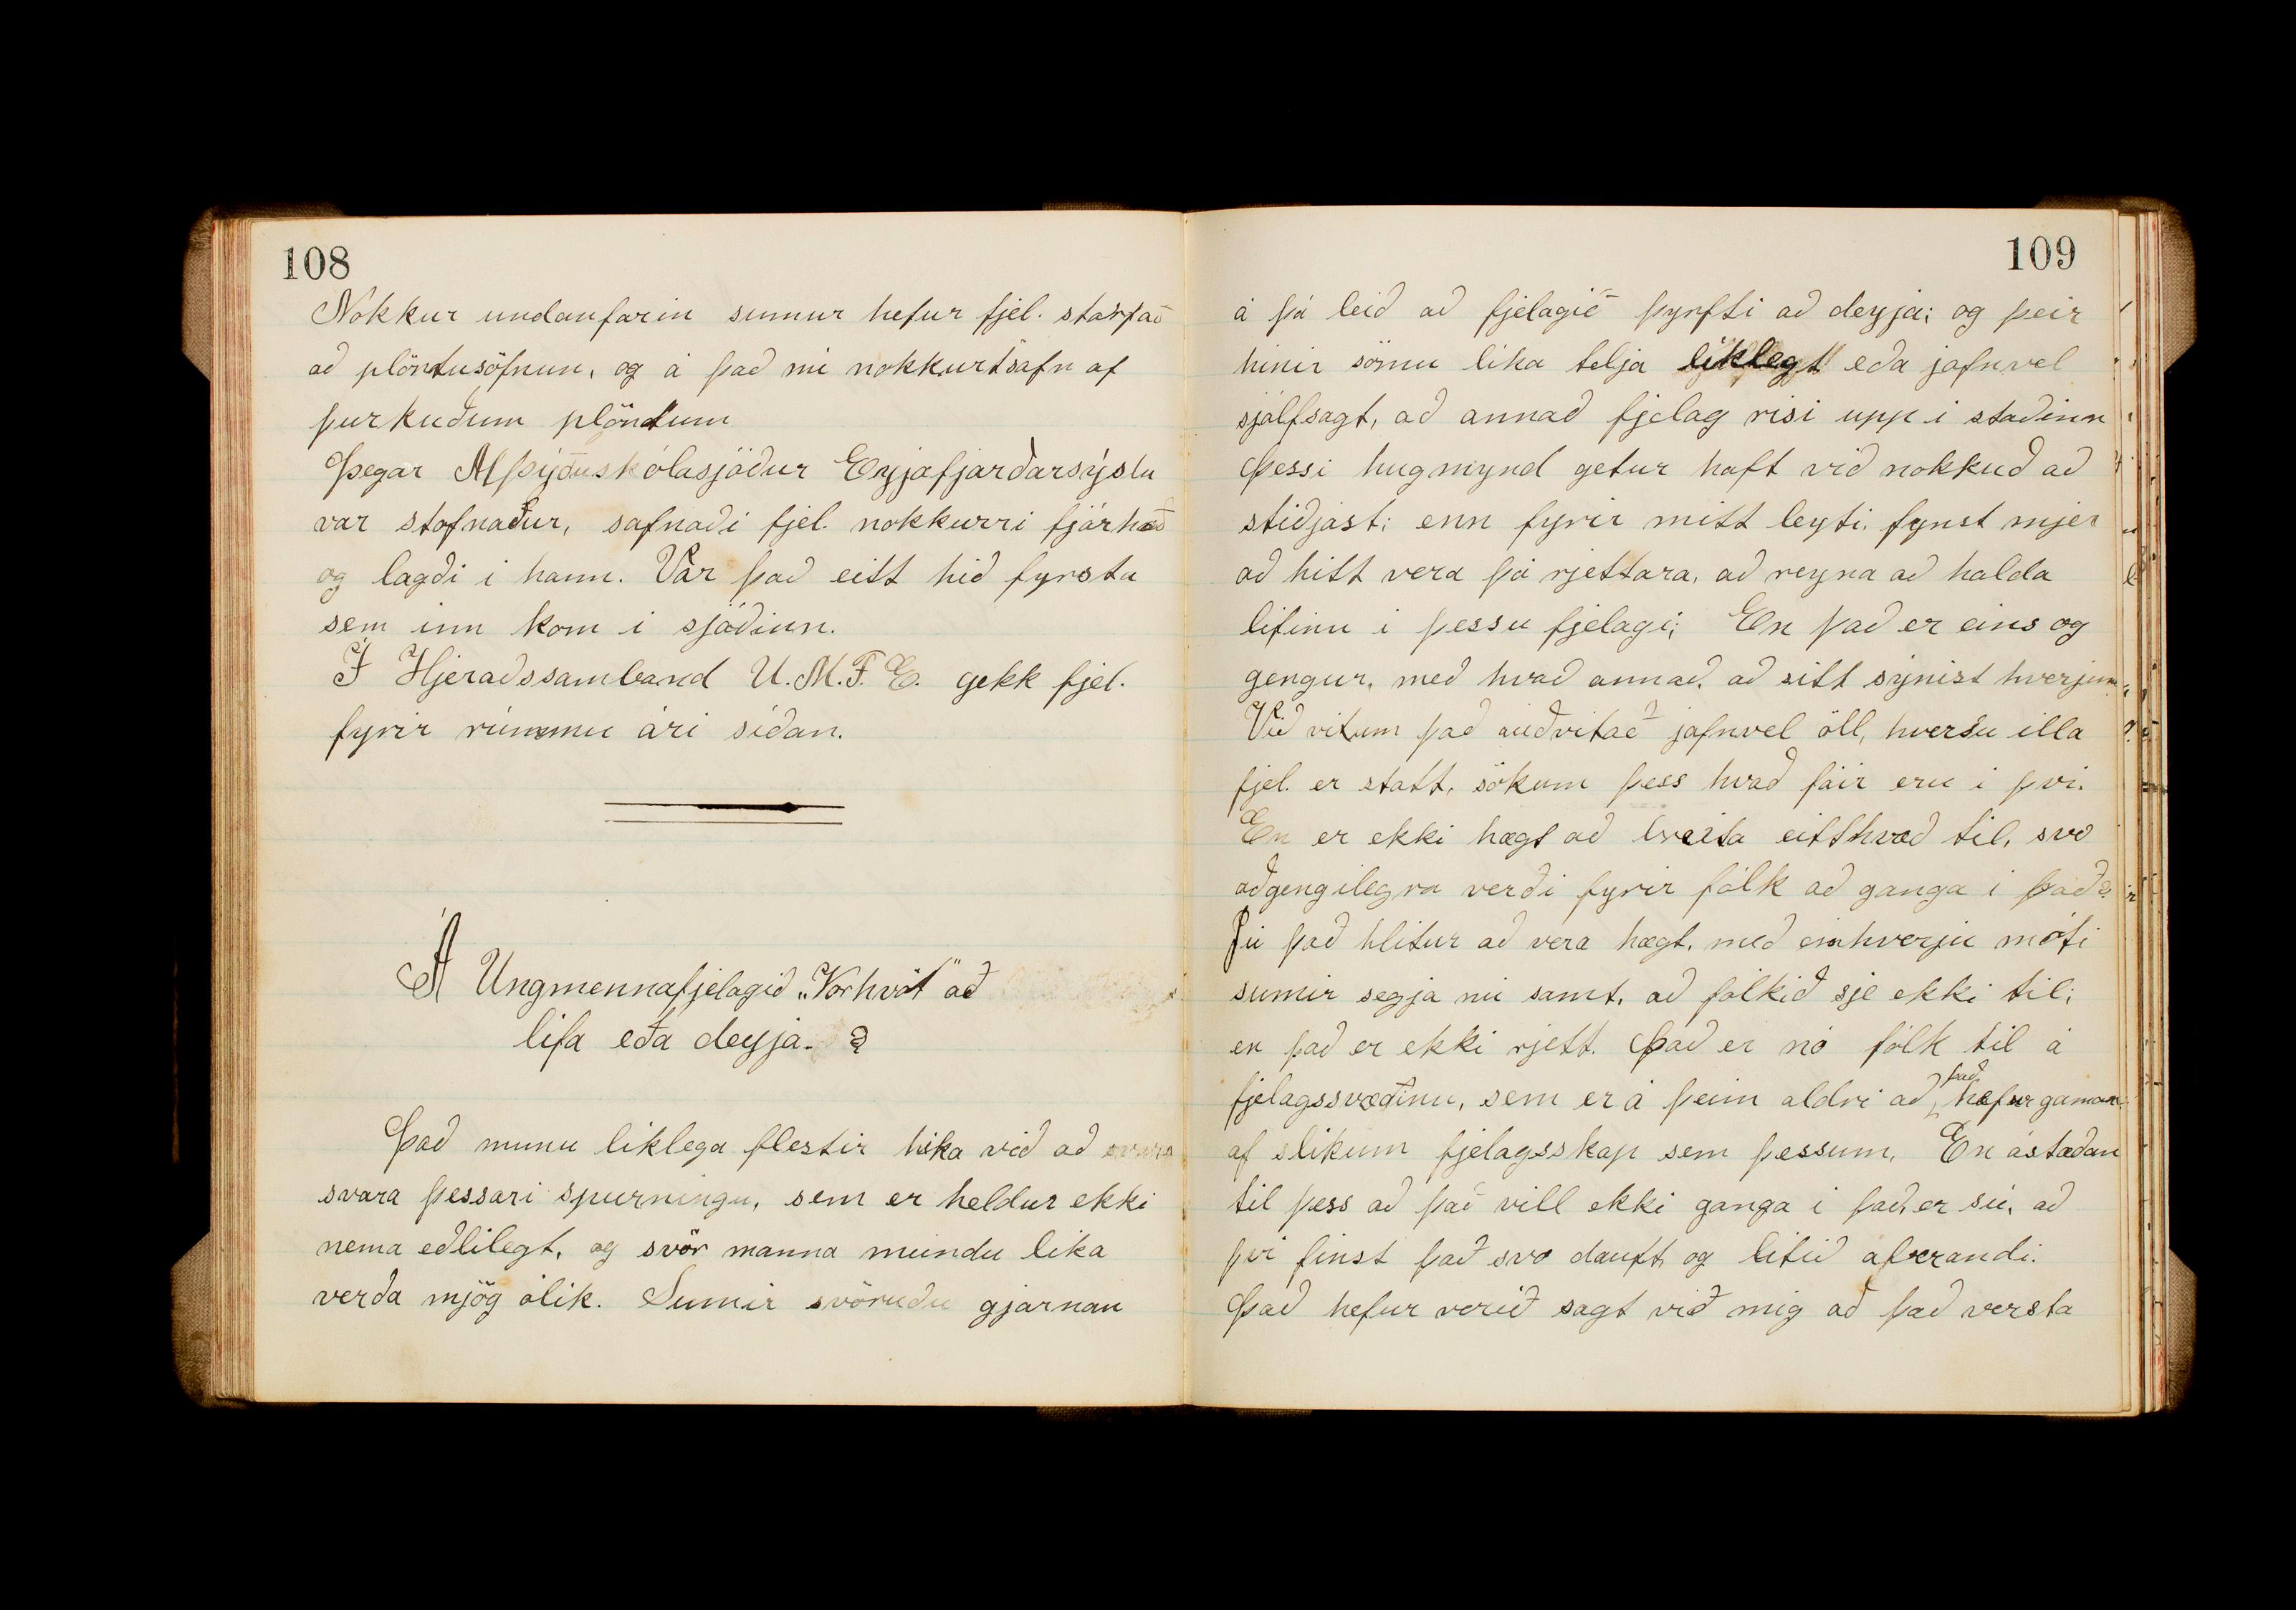 108
Nokkur undanfarin sumur hefur fjel. starfað
að plöntusöfnun, og á það nú nokkurt safn af
þurkuðum plöntum
Þegar Alþýðuskólasjóður Eyjafjarðarsýslu
var stofnaður, safnaði fjel. nokkurri fjárhæð
og lagði i hann. Var það eitt hið fyrsta
sem inn kom i sjóðinn.
Í Hjeraðssamband U.M.F.E. gekk fjel.
fyrir rúmmu ári síðan.
Á Ungmennafjelagið „Vorhvöt" að
lifa eða deyja. ?
Það munu liklega flestir hika við að svara
svara þessari spurningu, sem er heldur ekki
nema eðlilegt, og svör manna mundu lika
verða mjög ólik. Sumir svöruðu gjarnan
109
á þá leið að fjelagið þyrfti að deyja; og þeir
hinir sömu lika telja liklegt eða jafnvel
sjálfsagt, að annað fjelag risi upp i staðinn
Þessi hugmynd getur haft við nokkuð að
stiðjast; enn fyrir mitt leyti, fynst mjer
að hitt vera þá rjettara, að reyna að halda
lifinu i þessu fjelagi; En það er eins og
gengur, með hvað annað, að sitt sýnist hverjum,
Við vitum það auðvitað jafnvel öll, hversu illa
fjel. er statt, sökum þess hvað fáir eru i þvi.
En er ekki hægt að breita eitthvað til, svo
aðgengilegra verði fyrir fólk að ganga i það?
Jú það hlitur að vera hægt, með einhverju móti
sumir segja nú samt, að fólkið sje ekki til;
en það er ekki rjett. Það er nó fólk til á
fjelagssvæðinu, sem er á þeim aldri að það hefur gaman
af slikum fjelagsskap sem þessum. En ástæðan
til þess að það vill ekki ganga i það, er sú, að
þvi finst það svo dauft, og litið aðverandi.
Það hefur verið sagt við mig að það versta